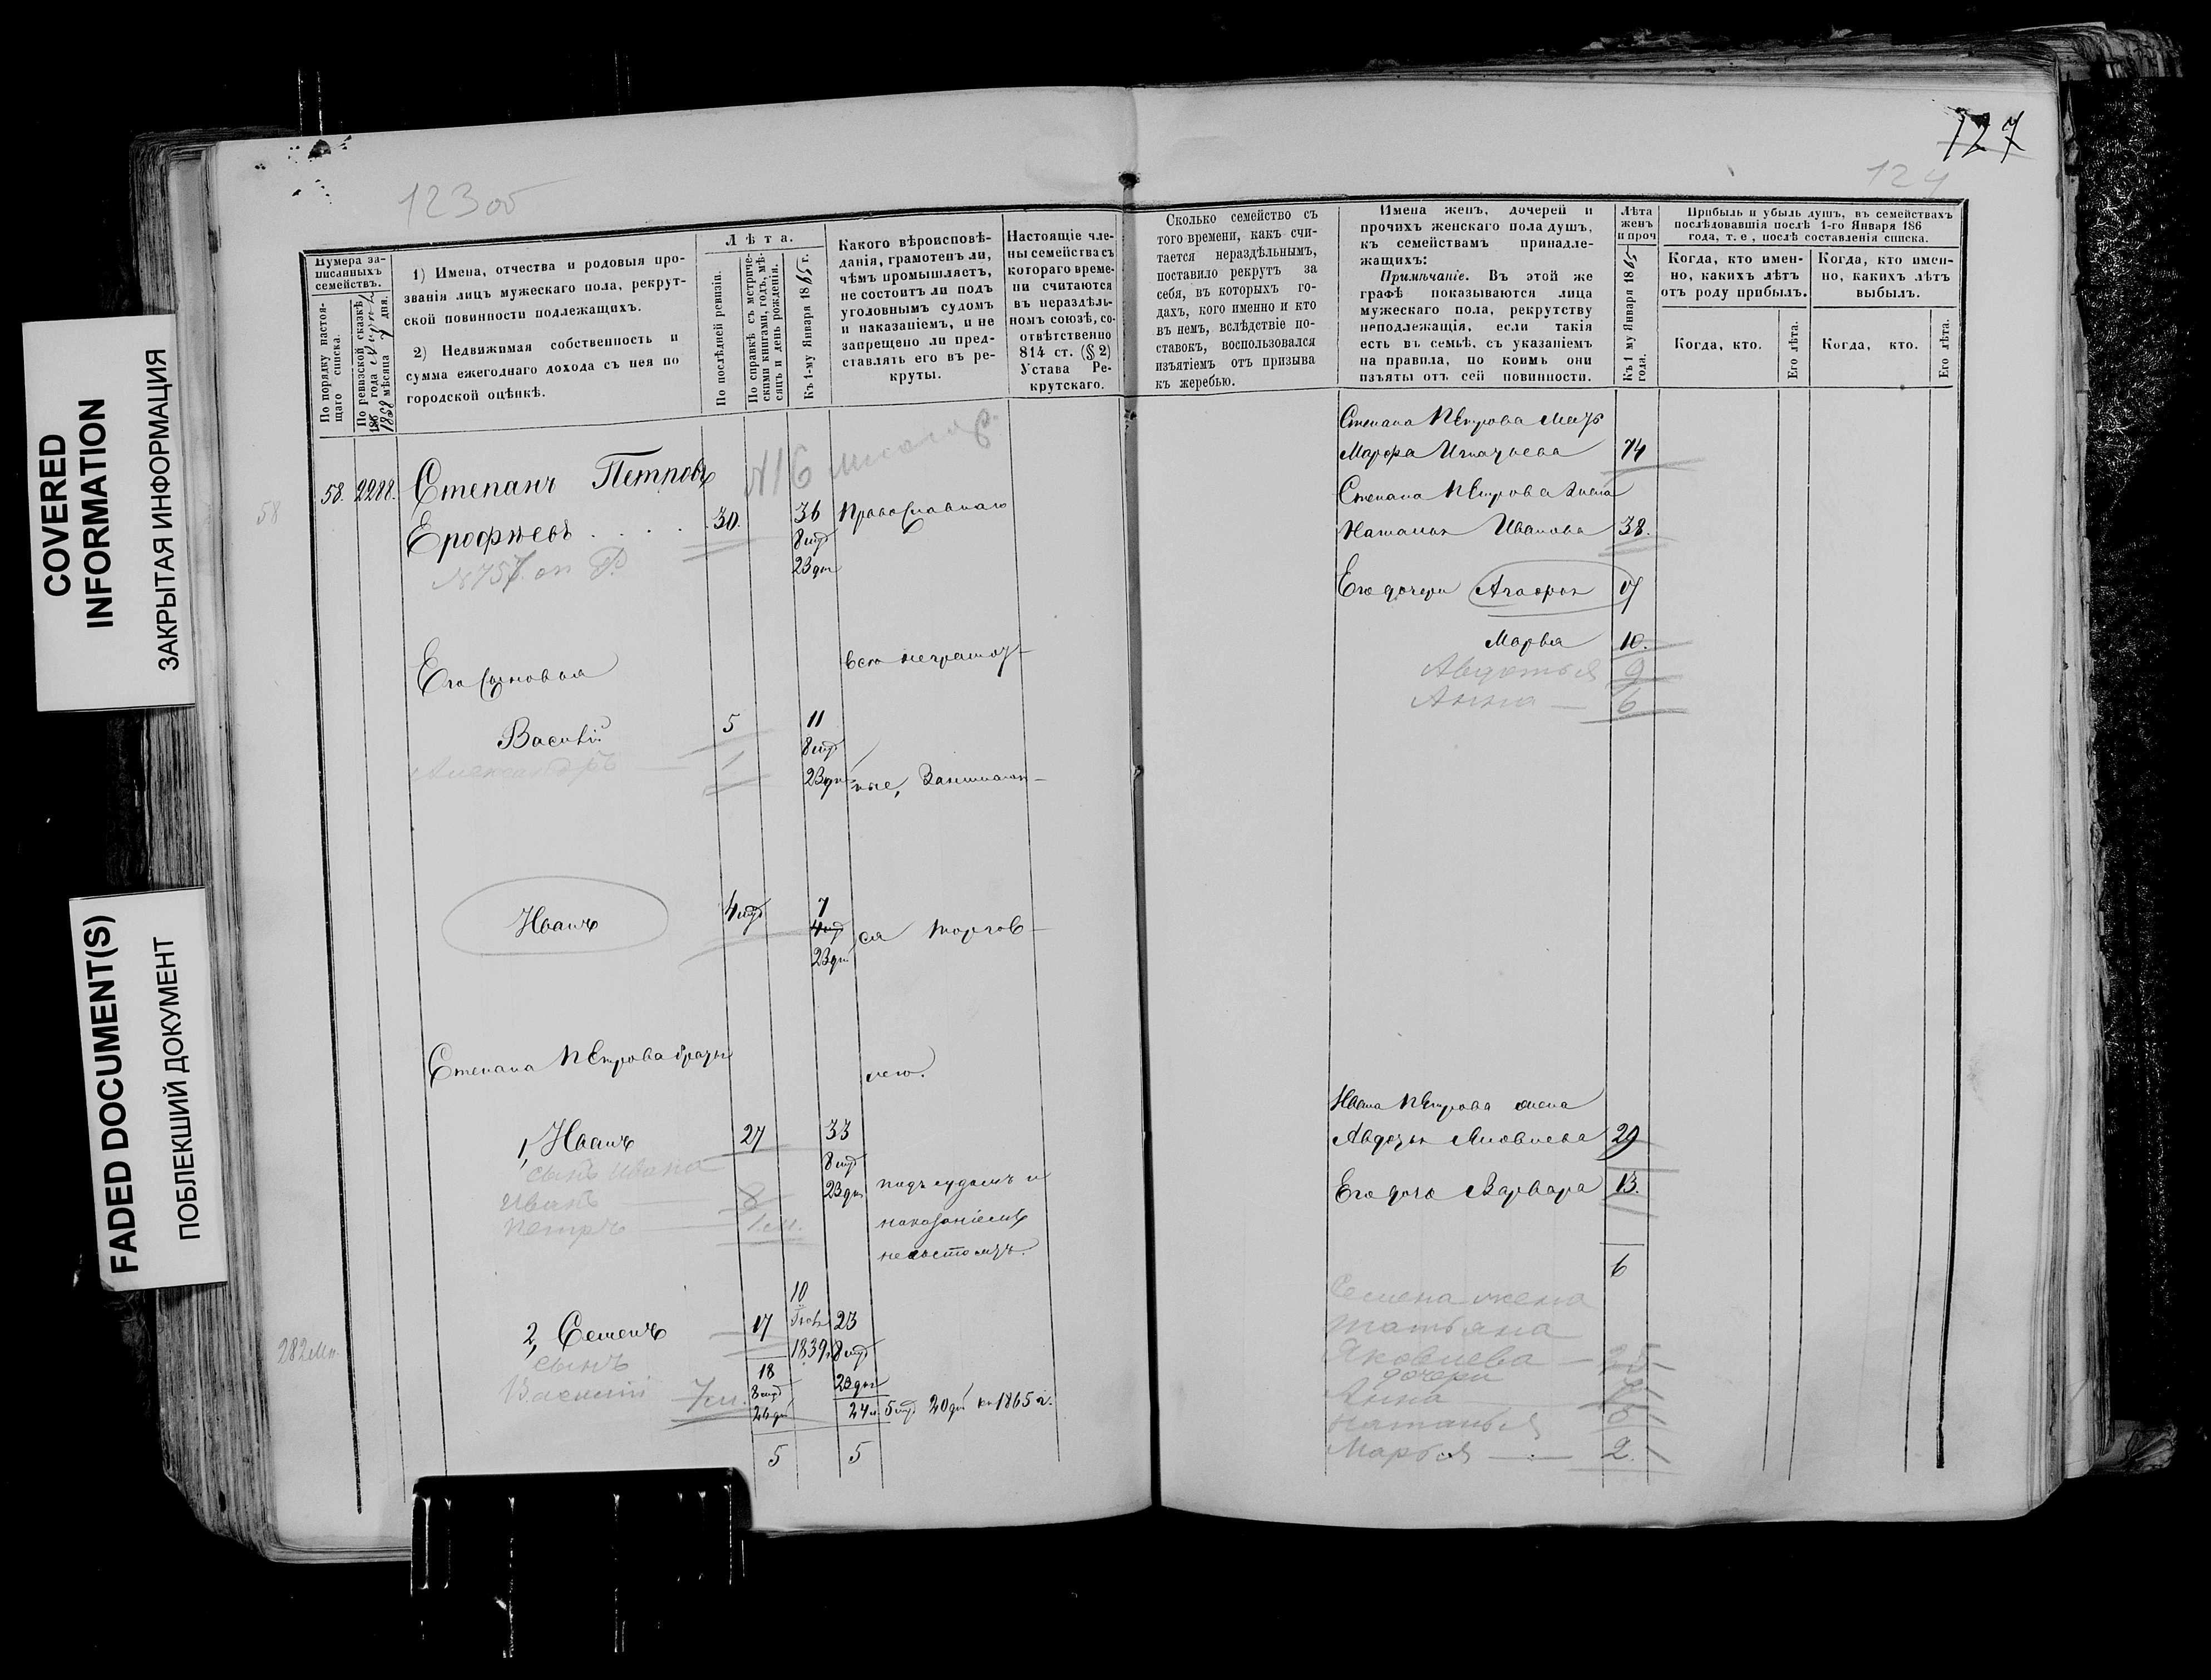 COVERED
INFORMATION
ЗАКРЫТАЯ ИНФОРМАЦИЯ
FADED DOCUMENT(S)
ПОБЛЕКШИЙ ДОКУМЕНТ
123 об
Нумера за-
писанныхъ
семействъ.
По порядку настоя-
щаго списка.
По ревизской сказкѣ
185 года
1858 мѣсяца дня.
1) Имена, отчества и родовыя про-
званія лицъ мужескаго пола, рекрут-
ской повинности подлежащихъ.
2) Недвижимая собственность и
сумма ежегоднаго дохода съ нея по
городской оцѣнкѣ.
Лѣта.
По послѣдней ревизіи.
По справкѣ съ метриче-
скими книгами, годъ, мѣ-
сяцъ и день рожденія.
Къ 1-му Января 1865 г.
Какого вѣроисповѣ-
данія, грамотенъ ли,
чѣмъ промышляетъ,
не состоитъ ли подъ
уголовнымъ судомъ
и наказаніемъ, и не
запрещено ли пред-
ставлять его въ ре-
круты.
Настоящіе чле-
ны семейства съ
котораго време-
ни считаются
въ нераздѣль-
номъ союзѣ, со-
отвѣтственно
814 ст. (§ 2)
Устава Ре-
крутскаго.
58 58. 2288. Степанъ Петровъ
Ерофѣевъ . . . . 30. 36 Православнаго
8 мѣс
23 дн
Его сыновья
всѣ неграмот-
Василій 5 11
8 мѣс
23 дн
Александръ — 1
ные, Занимают-
Иванъ 4 мѣс 7
4 мѣс
23 дн
ся торгов-
Степана Петрова братья
лею.
1, Иванъ 27 33
8 мѣс
23 дн
сынъ Ивана
Иванъ — 8
Петръ — 1 м.
подъ судомъ и
наказаніемъ
не состоятъ.
282 Мн.
2, Семенъ 17 10
1839 г. 23
8 мѣс
23 дн
сынъ
Василій 7 м.
18
8 мѣс
24 л. 5 мѣс 20 дн къ 1865 г.
5 5
127
124
Сколько семейство съ
того времени, какъ счи-
тается нераздѣльнымъ,
поставило рекрутъ за
себя, въ которыхъ го-
дахъ, кого именно и кто
въ немъ, вслѣдствіе по-
ставокъ, воспользовался
изъятіемъ отъ призыва
къ жеребью.
Имена женъ, дочерей и
прочихъ женскаго пола душъ,
къ семействамъ принадле-
жащихъ:
Примѣчаніе. Въ этой же
графѣ показываются лица
мужескаго пола, рекрутству
неподлежащія, если такія
есть въ семьѣ, съ указаніемъ
на правила, по коимъ они
изъяты отъ сей повинности.
Лѣта
женъ
и проч
Къ 1 му Января 1865
года.
Прибыль и убыль душъ, въ семействахъ
послѣдовавшія послѣ 1-го Января 186
года, т. е , послѣ составленія списка.
Когда, кто имен-
но, какихъ лѣтъ
отъ роду прибылъ.
Когда, кто имен-
но, какихъ лѣтъ
выбылъ.
Когда, кто.
Его лѣта.
Когда, кто.
Его лѣта.
Степана Петрова мать
Марфа Игнатьева 74
Степана Петрова жена
Наталья Иванова 38.
Его дочери Агафья 17
Марья 10.
Авдотья 9
Анна — 6
Ивана Петрова жена
Авдотья Яковлева 29
Его дочь Варвара 13.
6
Семена жена
Татьяна
Яковлева — 25
дочери
Анна 7
Наталья 5
Марья — 2.